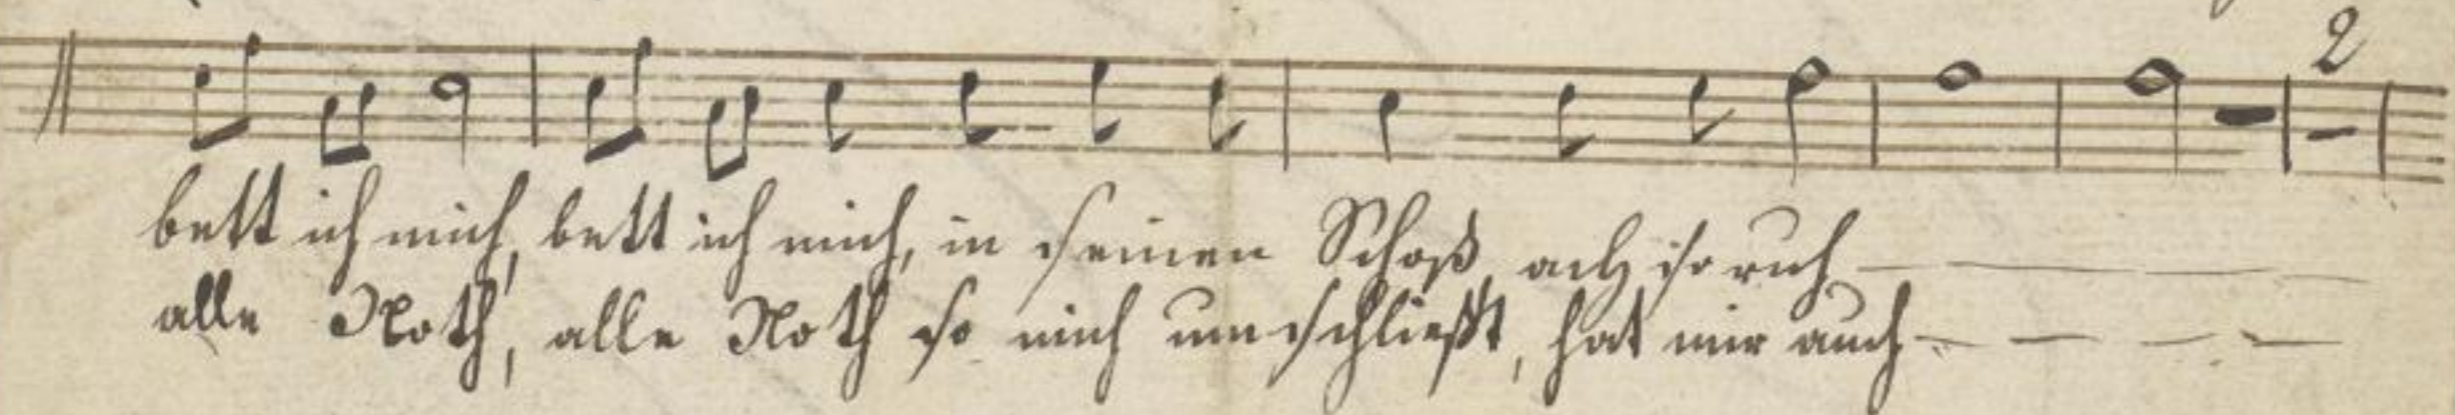 2
bett ich mich, bett ich mich, in seinen Schoß, ach so ruh
alle Noth, alle Noth so mich umschließt, hat mir auch